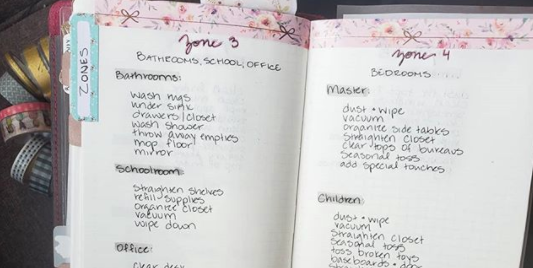 ZONES
Zone 3
BATHROOMS, SCHOOL, OFFICE
Bathrooms:
wash rugs
under sink
drawers/closet
wash shower
throw away empties
mop floor
mirror
Schoolroom:
straighten shelves
refill supplies
organize closet
vacuum
wipe down
Office:
clear desk
Zone 4
BEDROOMS
Master:
dust + wipe
vacuum
organize side tables
straighten closet
clear tops of bureaus
seasonal toss
add special touches
Children:
dust + wipe
vacuum
straighten closet
seasonal toss
toss broken toys
baseboards +